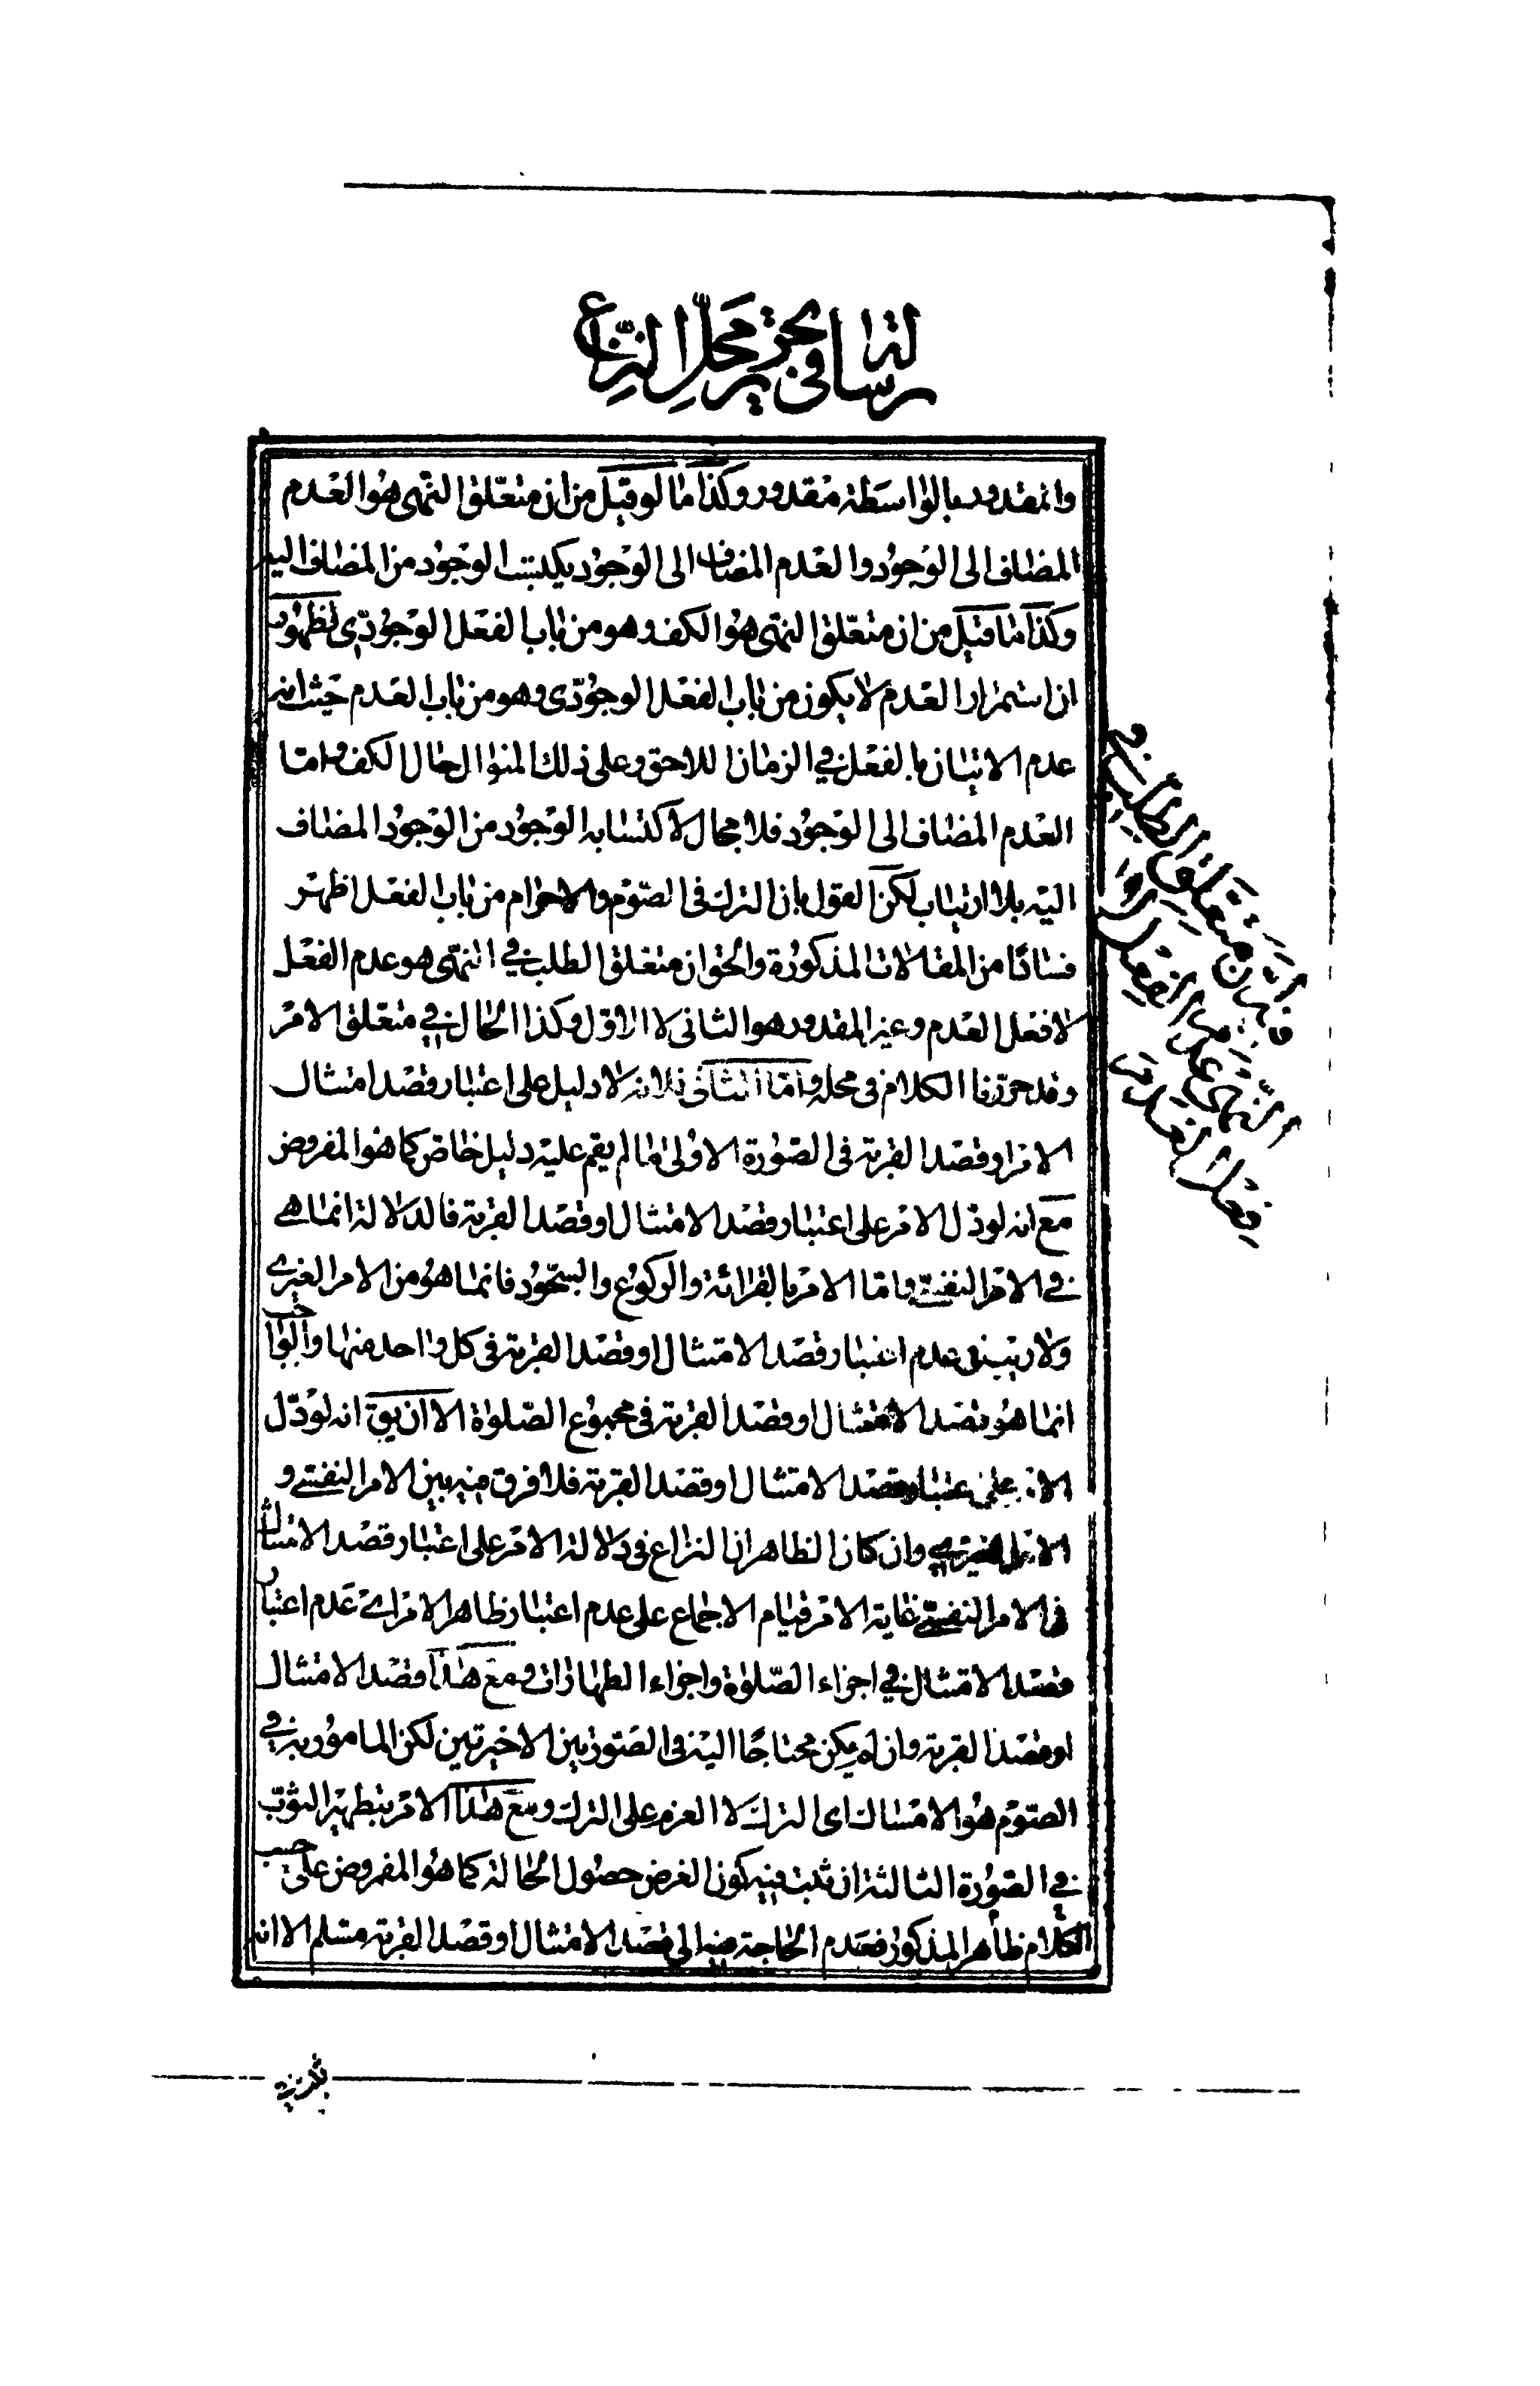 رسالة في تحرير محل النزاع
والمقدور بالواسطة مقدور وكذا ما لو قيل من ان متعلق النهى هو العدم
المضاف الى الوجود والعدم المضاف الى الوجود يكتسب الوجود من المضاف اليه
وكذا ما قيل من ان متعلق النهى هو الكف وهو من باب الفعل الوجودى لظهور
ان استمرار العدم لا يكون من باب الفعل الوجودى وهو من باب العدم حيث انه
عدم الاتيان بالفعل في الزمان اللاحق وعلى ذلك المنوال حال الكف واما
العدم المضاف الى الوجود فلا مجال لاكتسابه الوجود من الوجود المضاف
اليه بلا ارتياب لكن القول بان الترك فى الصوم والاحرام من باب الفعل اظهر
فسادا من المقالات المذكورة والحق ان متعلق الطلب في النهى هو عدم الفعل
لا فعل العدم وغير المقدور هو الثانى لا الاول وكذا الحال في متعلق الامر
وقد حررنا الكلام فى محله واما الثانى فلانه لا دليل على اعتبار قصد امتثال
الامر او قصد القربة فى الصورة الاولى ما لم يقم عليه دليل خاص كما هو المفروض
مع انه لو دل الامر على اعتبار قصد الامتثال او قصد القربة فالدلالة انما هى
في الامر النفسى واما الامر بالقرائة والركوع والسجود فانما هو من الامر الغيرى
ولا ريب فى عدم اعتبار قصد الامتثال او قصد القربة فى كل واحد منها والواجب
انما هو قصد الامتثال او قصد القربة فى مجموع الصلوة الا ان يق انه لو دل
الامر على اعتبار قصد الامتثال او قصد القربة فلا فرق فيه بين الامر النفسى و
الامر الغيرى وان كان الظاهر ان النزاع فى دلالة الامر على اعتبار قصد الامتثال
فى الامر النفسى غاية الامر قيام الاجماع على عدم اعتبار ظاهر الامر اى عدم اعتبار
قصد الامتثال في اجزاء الصلوة واجزاء الطهارات ومع هذا قصد الامتثال
او قصد القربة وان لم يكن محتاجا اليه فى الصورتين الاخيرتين لكن المامور به في
الصوم هو الامساك اى الترك لا العزم على الترك ومع هذا الامر بتطهير الثوب
في الصورة الثالثة ان ثبت فيه كون الغرض حصول الحالة كما هو المفروض على حسب
الكلام ظاهر المذكور فعدم الحاجة فيه الى قصد الامتثال او قصد القربة مسلم الا انه